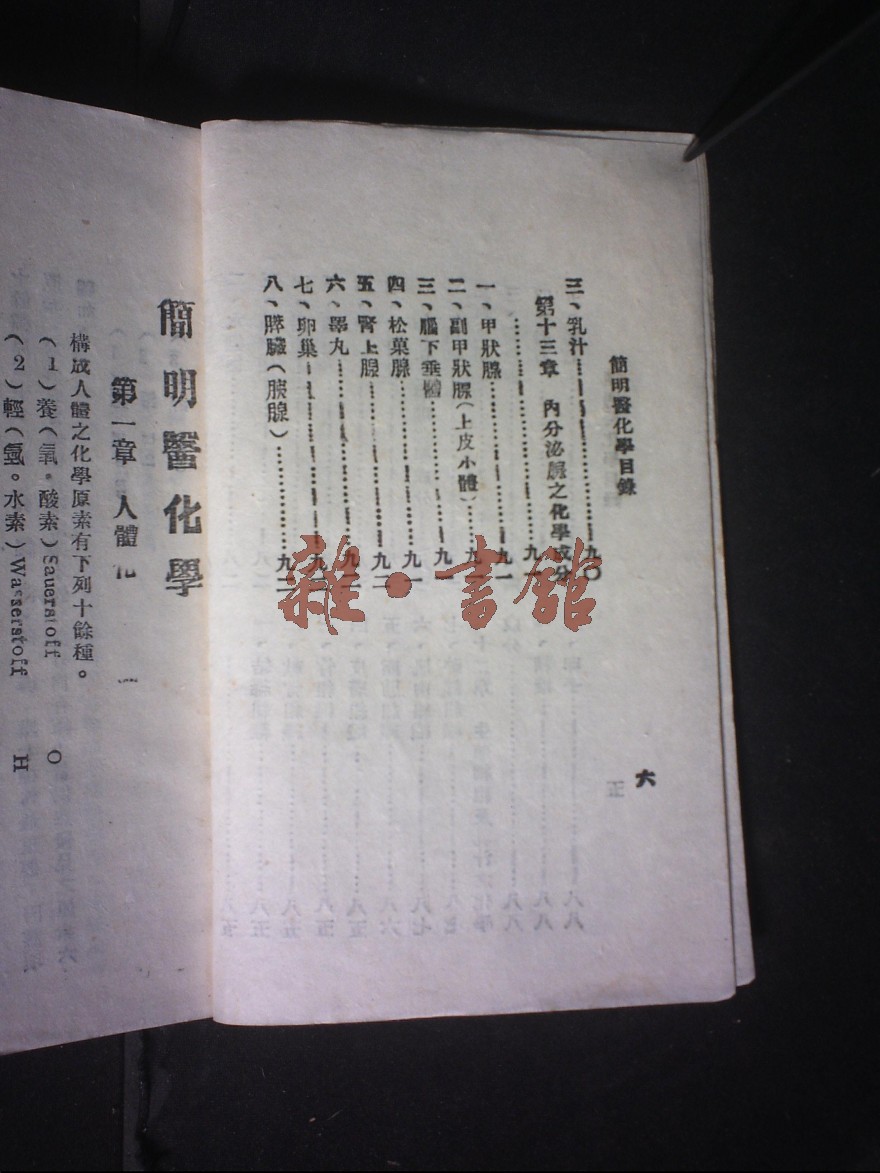 簡明醫化學目錄
六
三、乳汁……九〇
第十三章 內分泌腺之化學成分
……九一
一、甲狀腺……九一
二、副甲狀腺(上皮小體)……九一
三、腦下垂體……九一
四、松菓腺……九一
五、腎上腺……九二
六、睪丸……九二
七、卵巢……九二
八、脺臟(胰腺)……九二
簡明醫化學
第一章 人體化
構成人體之化學原素有下列十餘種。
(1)養(氧。酸素)Sauerstoff O
(2)輕(氫。水素)Wasserstoff H
雜·書館